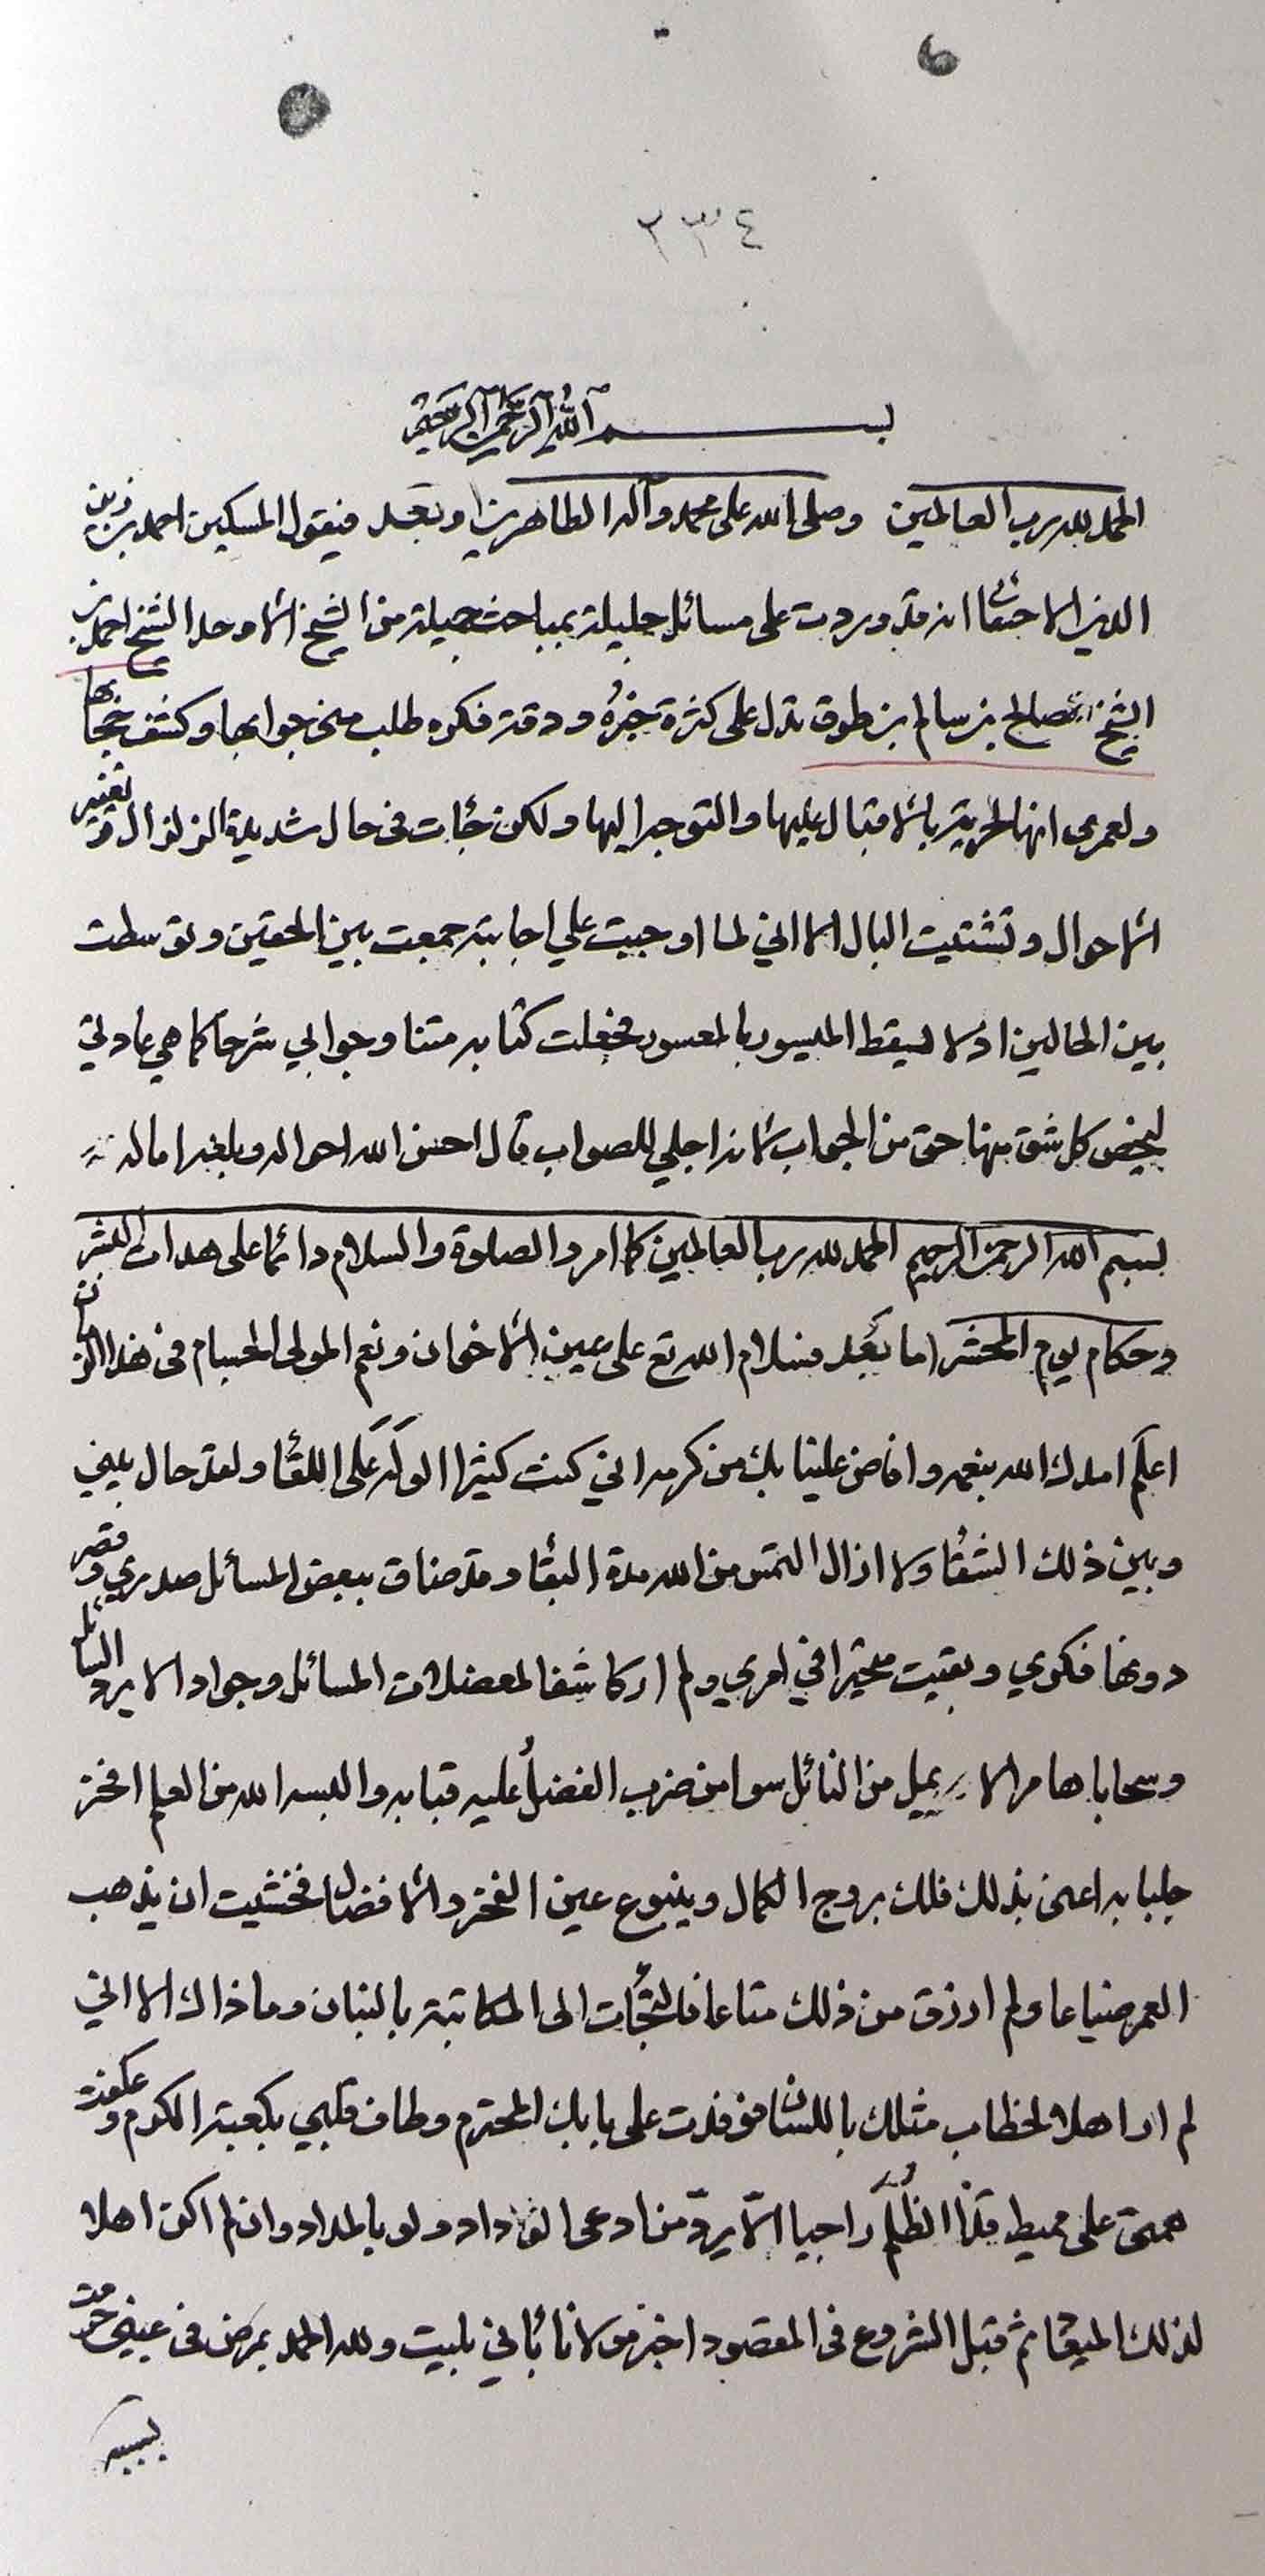 ٢٣٤
بسم الله الرحمن الرحيم
الحمد لله رب العالمين وصلى الله على محمد وآله الطاهرين وبعد فيقول المسكين احمد بن زين
الدين الاحسائي انه قد وردت على مسائل جليلة بمباحث جميلة من الشيخ الاوحد الشيخ احمد بن
الشيخ صالح بن سالم بن طوق تدل على كثرة خبره ودقة فكره طلب مني جوابها وكشف حجابها
ولعمري انها لحرية بالاقبال عليها والتوجه اليها ولكن جاءت في حال شديدة الزلزال وتغيير
الاحوال وتشتيت البال الا اني لما اوجبت علي اجابته جمعت بين الحقين وتوسطت
بين الحالين اذ لا يسقط الميسور بالمعسور فجعلت كتابه متنا وجوابي شرحا كما هي عادتي
ليخص كل شق منها حق من الجواب لانه اجلي للصواب قال احسن الله احواله وبلغه اماله
بسم الله الرحمن الرحيم الحمد لله رب العالمين كما امر والصلوة والسلام دائما على هداة البشر
وحكام يوم المحشر اما بعد فسلام الله تع على عين الاخوان ونعم المولى الحسام في هذا الزمان
اعلم امدك الله بنعمه وافاض علينا بك من كرمه اني كنت كثيرا الوله على اللقاء ولقد حال بيني
وبين ذلك الشقاء ولا ازال التمس من الله مدة البقاء وقد ضاق ببعض المسائل صدري وقصر
دونها فكري وبقيت متحيرا في امري ولم ار كاشفا لمعضلات المسائل وجوادا لا يرد السائل
وسحابا هامرا لا يميل من النائل سوا من ضرب الفضل عليه قبابه والبسه الله من العلم افخر
جلبابه اعني بذلك فلك بروج الكمال وينبوع عين الفخر والافضال فخشيت ان يذهب
العمر ضياعا ولم ارزق من ذلك متاعا فالتجأت الى المكاتبة بالبنان وما ذاك الا اني
لم ار اهلا لخطاب مثلك باللسان فوفدت على بابك المحترم وطاف قلبي بكعبة الكرم وعكفت
همتي على محيط راجيا الا يرد من ادعى الوداد ولو بالمداد وان لم اكن اهلا
لذلك الميقات ثم قبل الشروع في المقصود اخبر مولانا باني بليت ولله الحمد بمرض في عيني حرمت
بسببه